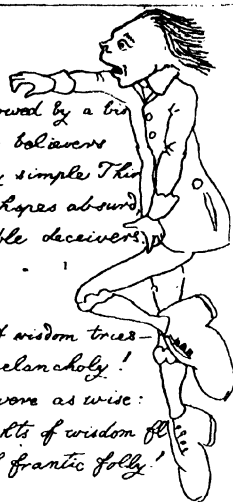 owed by a bi
believers
simple Thin
hopes absurd,
ble deceivers,
t wisdom tries—
elancholy!
were as wise:
hts of wisdom fl
frantic folly!